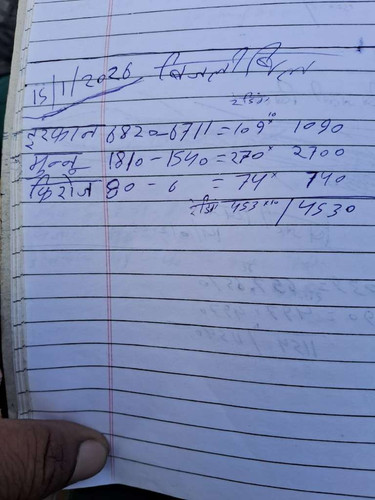 15/1/2026 बिजली बिल
रिडिंग
इरफान 6820-6711 = 109 ×10 1090
मुन्नु 1810 - 1540 = 270 × 2700
फिरोज 80 - 6 = 74 × 740
453 ×10 / 4530